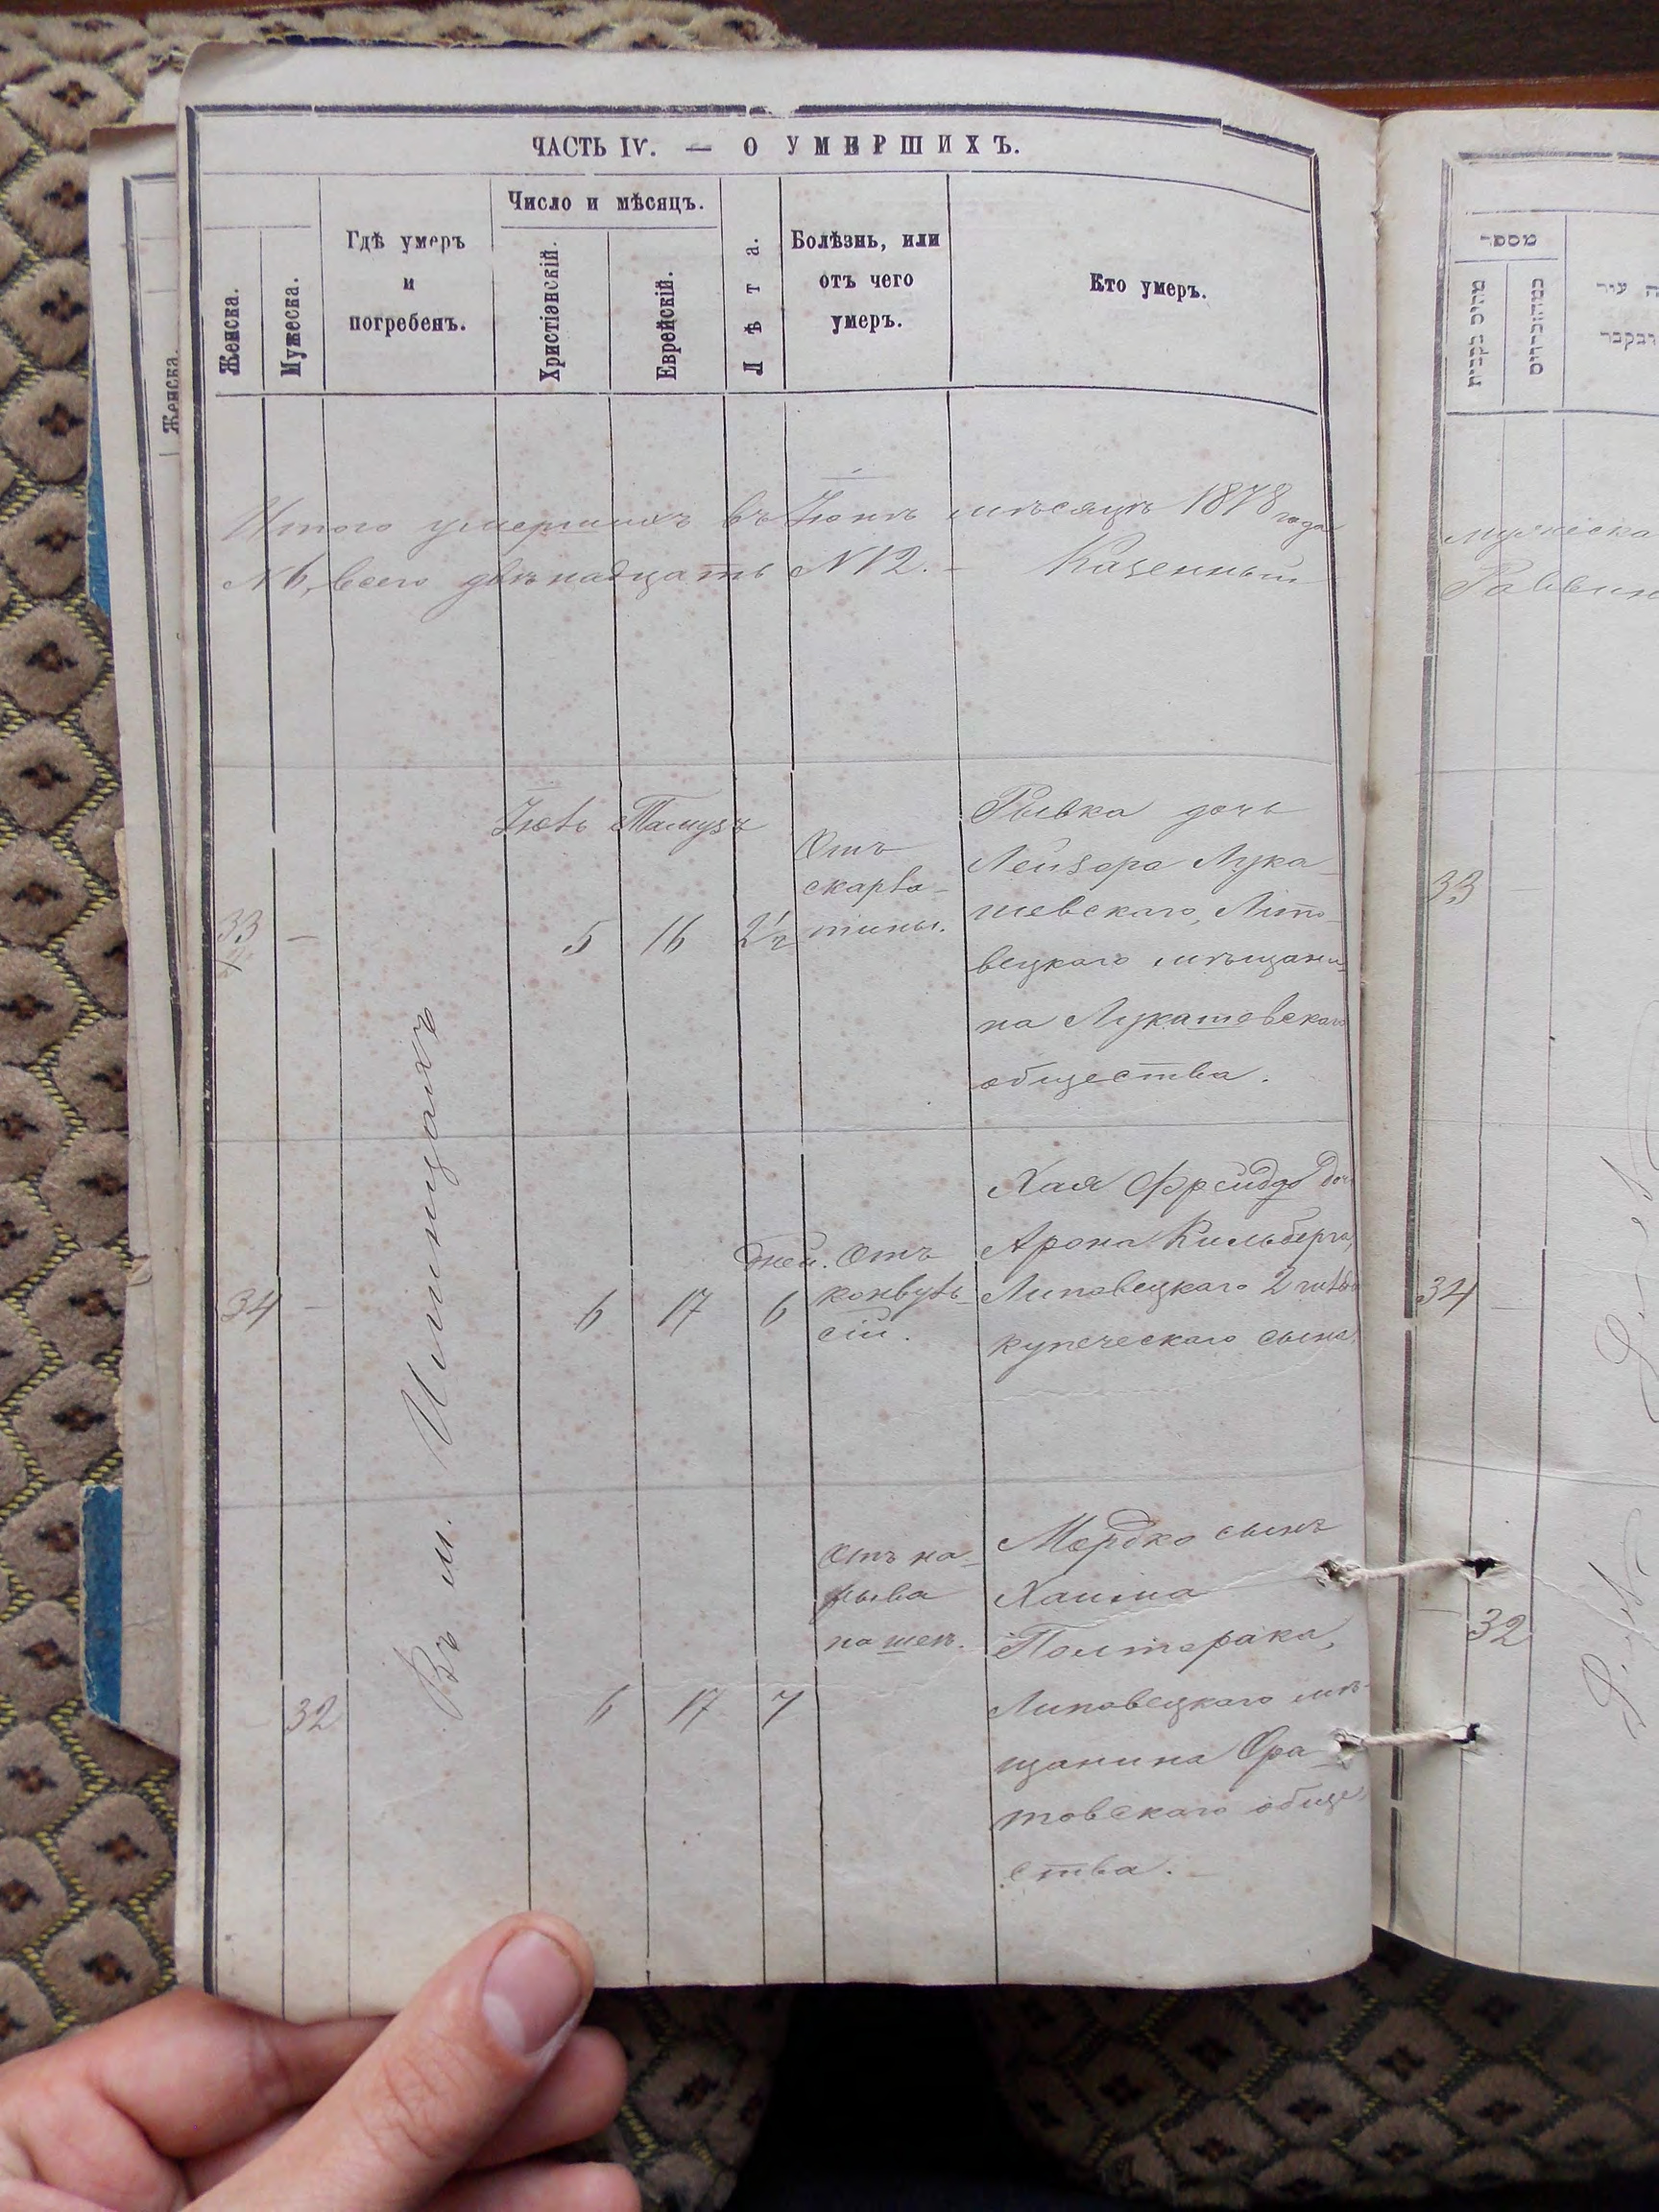 ЧАСТЬ IV. — О УМЕРШИХЪ.
Женска.
Мужеска.
Гдѣ умеръ
и
погребенъ.
Число и мѣсяцъ.
Христіанскій.
Еврейскій.
Лѣта.
Болѣзнь, или
отъ чего
умеръ.
Кто умеръ.
Итого умершихъ въ Іюнѣ мѣсяцѣ 1878 года
№ 6, всего двѣнадцать №12. — Казенный
Въ м. Илинцахъ
Іюль Тамузъ
33 — 5 16 2½
Отъ
скарла-
тины.
Рывка дочь
Лейзора Лука-
шевскаго, Липо-
вецкаго мѣщани-
на Лукашевскаго
общества.
34 — 6 17 6
дней.
Отъ
конвуль-
сій.
Хая Фрейда дочь
Арона Кильберга,
Липовецкаго 2 гильд
купеческаго сына
— 32 6 17 7
Отъ на-
рыва
на шеѣ.
Мордко сынъ
Хаима
Полторака,
Липовецкаго мѣ-
щанина Ора-
товскаго обще-
ства. —
Женска.
מספר
מהים נקבות
מהזכרים
עיר
ונקבר
мужеска
Раввин
33
34 —
— 32